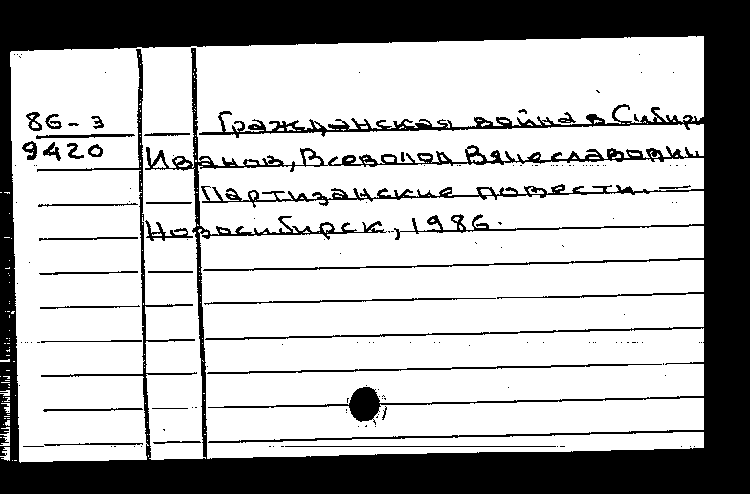 86-3 Гражданская война в Сибири
9420 Иванов, Всеволод Вячеславович
Партизанские повести. —
Новосибирск, 1986.